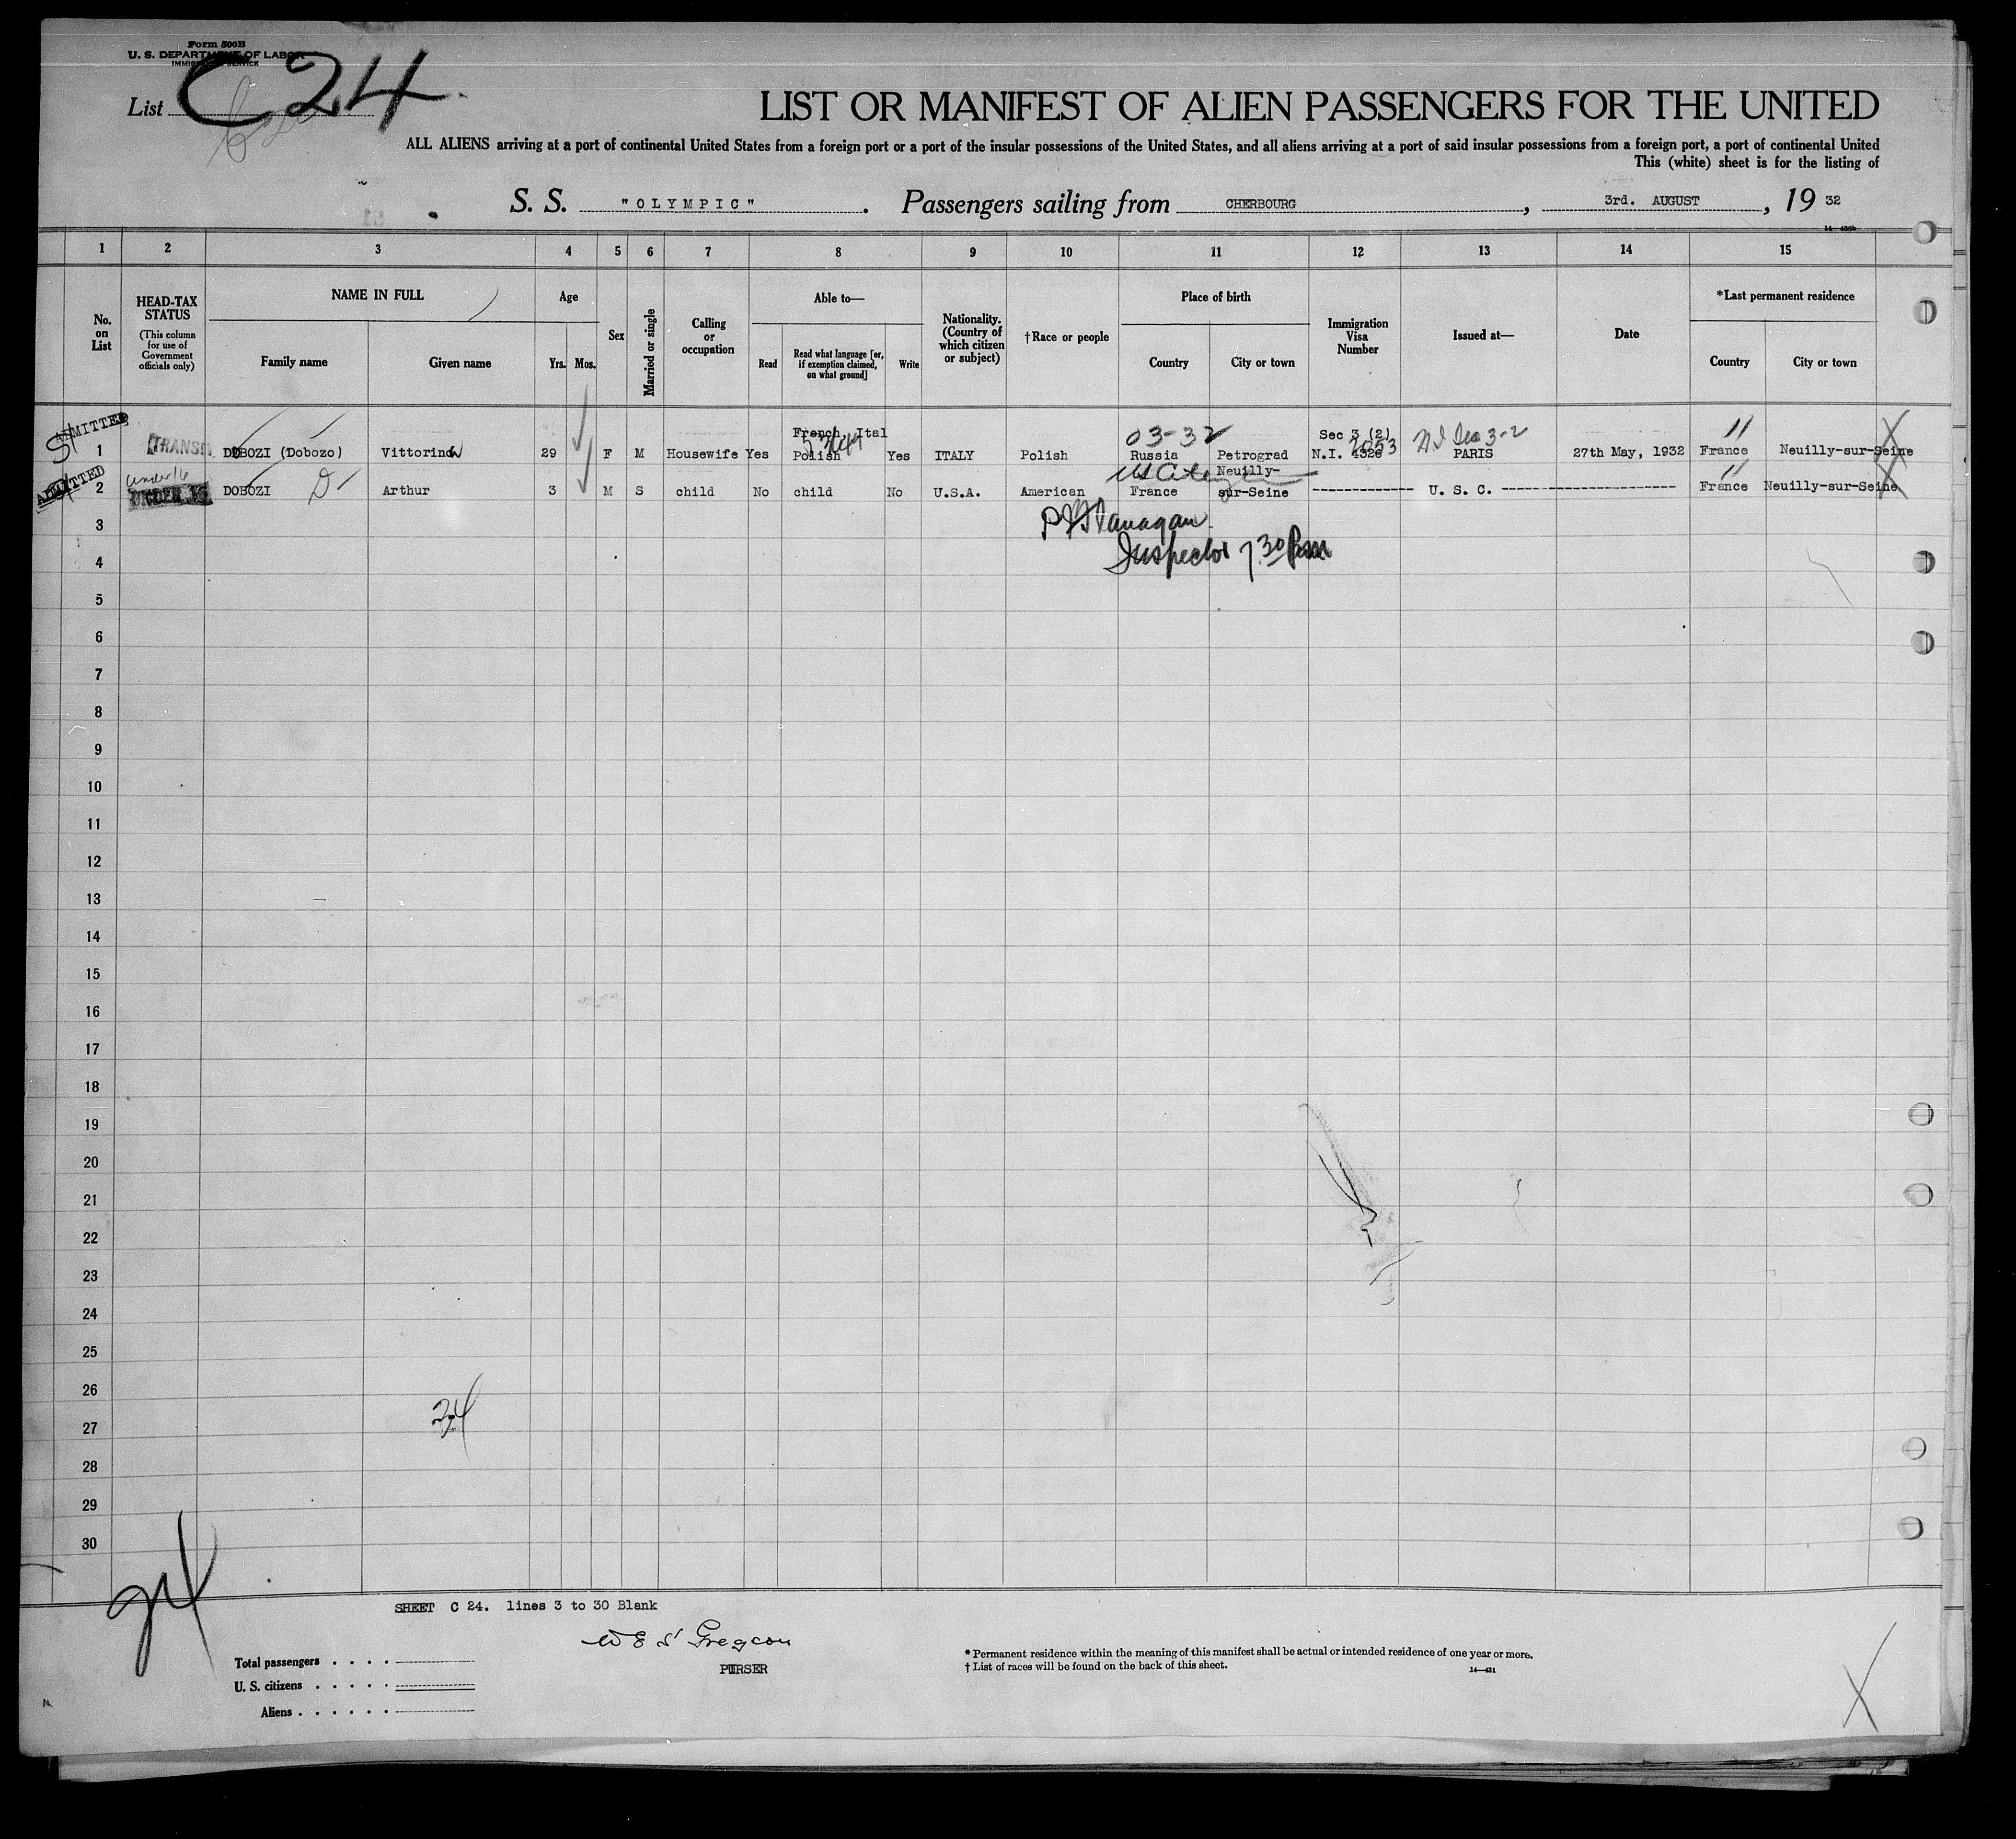 Form 500B
U. S. DEPARTMENT OF LABOR
IMMIGRATION SERVICE
List C24
LIST OR MANIFEST OF ALIEN PASSENGERS FOR THE UNITED
ALL ALIENS arriving at a port of continental United States from a foreign port or a port of the insular possessions of the United States, and all aliens arriving at a port of said insular possessions from a foreign port, a port of continental United
This (white) sheet is for the listing of
S. S. "OLYMPIC". Passengers sailing from CHERBOURG, 3rd. AUGUST, 19 32
1 2 3 4 5 6 7 8 9 10 11 12 13 14 15
No. on List
HEAD-TAX STATUS
(This column for use of Government officials only)
NAME IN FULL
Family name
Given name
Age
Yrs. Mos.
Sex
Married or single
Calling or occupation
Able to—
Read
Read what language [or, if exemption claimed, on what ground]
Write
Nationality. (Country of which citizen or subject)
†Race or people
Place of birth
Country
City or town
Immigration Visa Number
Issued at—
Date
*Last permanent residence
Country
City or town
ADMITTED
French, Ital 03-32 Sec 3 (2)
1 DOBOZI (Dobozo) Vittorina 29 F M Housewife Yes Polish Yes ITALY Polish Russia Petrograd N.I. PARIS 27th May, 1932 France Neuilly-sur-Seine
ADMITTED under 16 Neuilly-
2 UNDER 16 DOBOZI D Arthur 3 M S child No child No U.S.A. American France sur-Seine U. S. C. France Neuilly-sur-Seine
3
Inspector 7.30 Pm
4
5
6
7
8
9
10
11
12
13
14
15
16
17
18
19
20
21
22
23
24
25
26
24
27
28
29
30
24
SHEET C 24. lines 3 to 30 Blank
PURSER
Total passengers
U. S. citizens
Aliens
* Permanent residence within the meaning of this manifest shall be actual or intended residence of one year or more.
† List of races will be found on the back of this sheet.
14—431